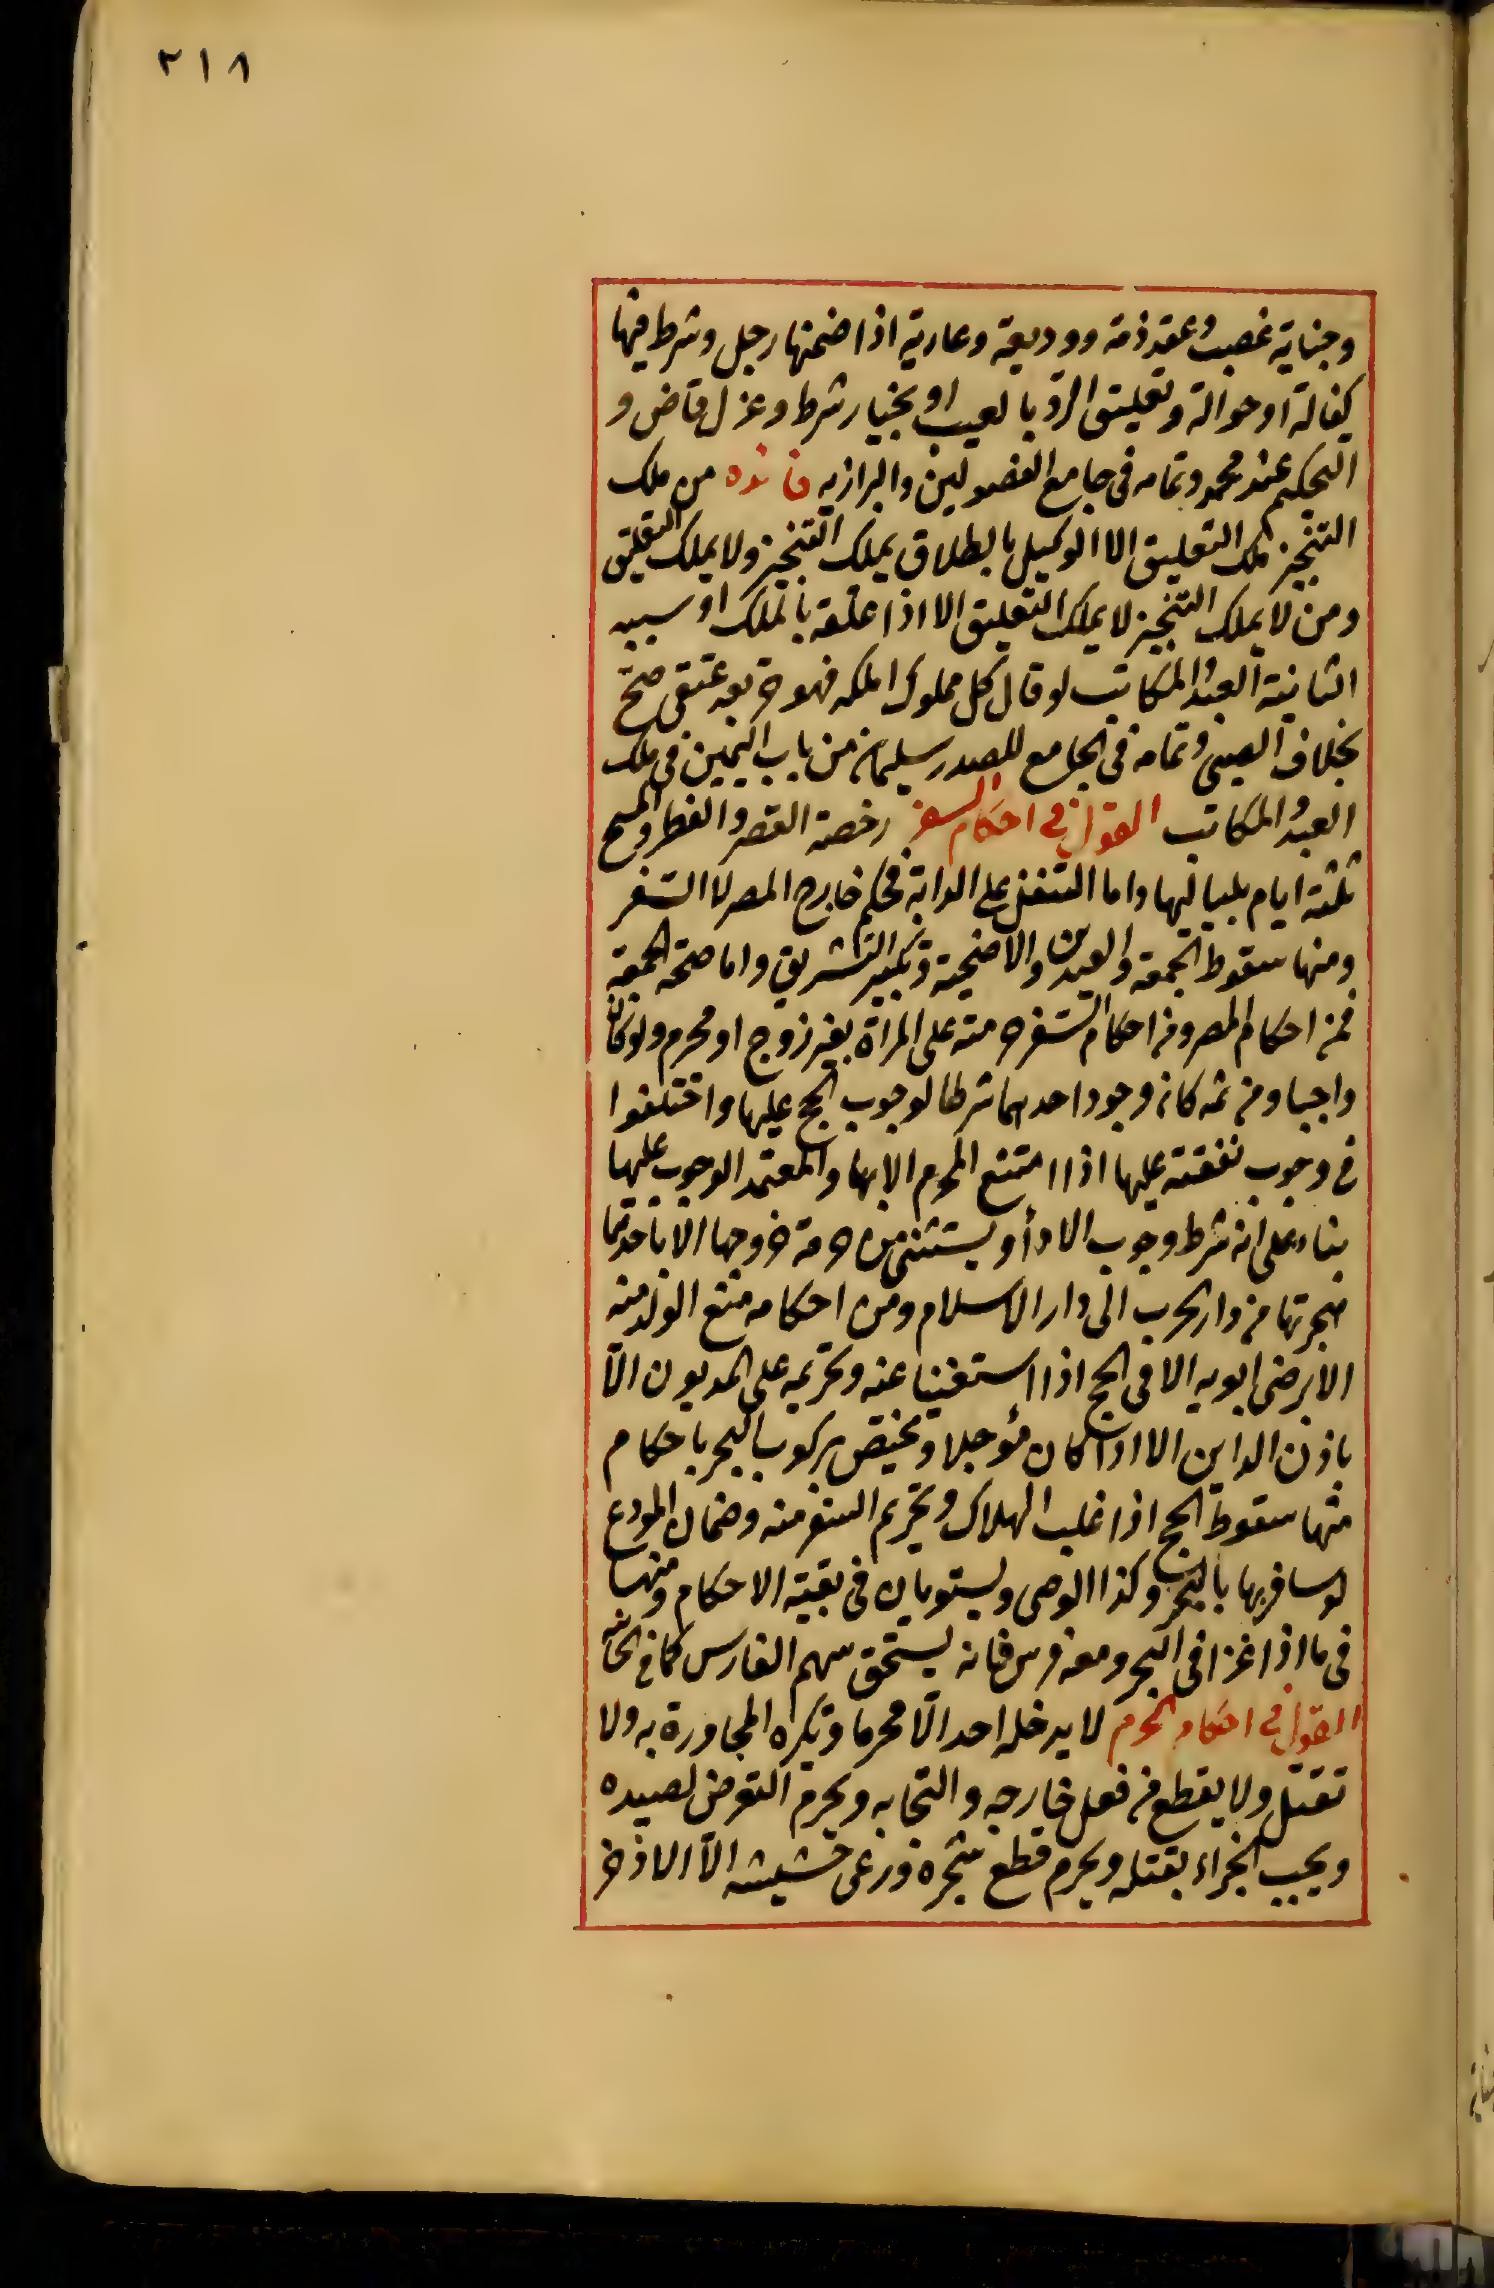 ٣١٨
وجناية غصب وعقد ذمة ووديعة وعارية اذا ضمنها رجل وشرط فيها
كفالة او حوالة وتعليق الرد بالعيب او بخيار شرط وعزل قاض و
التحكيم عند محمد وتمامه فى جامع الفصولين والبزازيه فائده من ملك
التنجيز ملك التعليق الا الوكيل بالطلاق يملك التنجيز ولا يملك التعليق
ومن لا يملك التنجيز لا يملك التعليق الا اذا علقه بالملك او سببه
الثانية العبد المكاتب لو قال كل مملوك املكه فهو حر بعد عتقى صح
بخلاف الصبى وتمامه فى الجامع للصدر سليمان من باب اليمين فى ملك
العبد المكاتب القول فى احكام السفر رخصة القصر والفطر والمسح
ثلثة ايام بلياليها واما التنفل على الدابة فحكم خارج المصر لا السفر
ومنها سقوط الجمعة والعيدين والاضحية وتكبير التشريق واما صحة الجمعة
فمن احكام المصر ومن احكام السفر حرمته على المراة بغير زوج او محرم ولو كان
واجبا ومن ثمه كان وجود احدهما شرطا لوجوب الحج عليها واختلفوا
فى وجوب نفقته عليها اذا امتنع المحرم الا بها والمعتمد الوجوب عليها
بناء على انه شرط وجوب الادأ ويستثنى من حرمة خروجها الا باحدهما
هجرتها من دار الحرب الى دار الاسلام ومن احكامه منع الولد منه
الا برضى ابويه الا فى الحج اذا استغنيا عنه وتحريمه على المديون الا
باذن الداين الا اذا كان مؤجلا ويختص بركوب البحر باحكام
منها سقوط الحج اذا غلب الهلاك وتحريم السفر منه وضمان المودع
لو سافر بها بالبحر وكذا الوصى ويستويان فى بقية الاحكام ومنها
فى ما اذا غزا فى البحر ومعه فرس فانه يستحق سهم الفارس كما فى الخانيه
القول فى احكام الحرم لا يدخله احد الا محرما وتكره المجاورة به ولا
تقتل ولا يقطع من فعل خارجه والتجا به ويحرم التعرض لصيده
ويجب الجزاء بقتله ويحرم قطع شجره ورعى حشيشه الا الاذخر